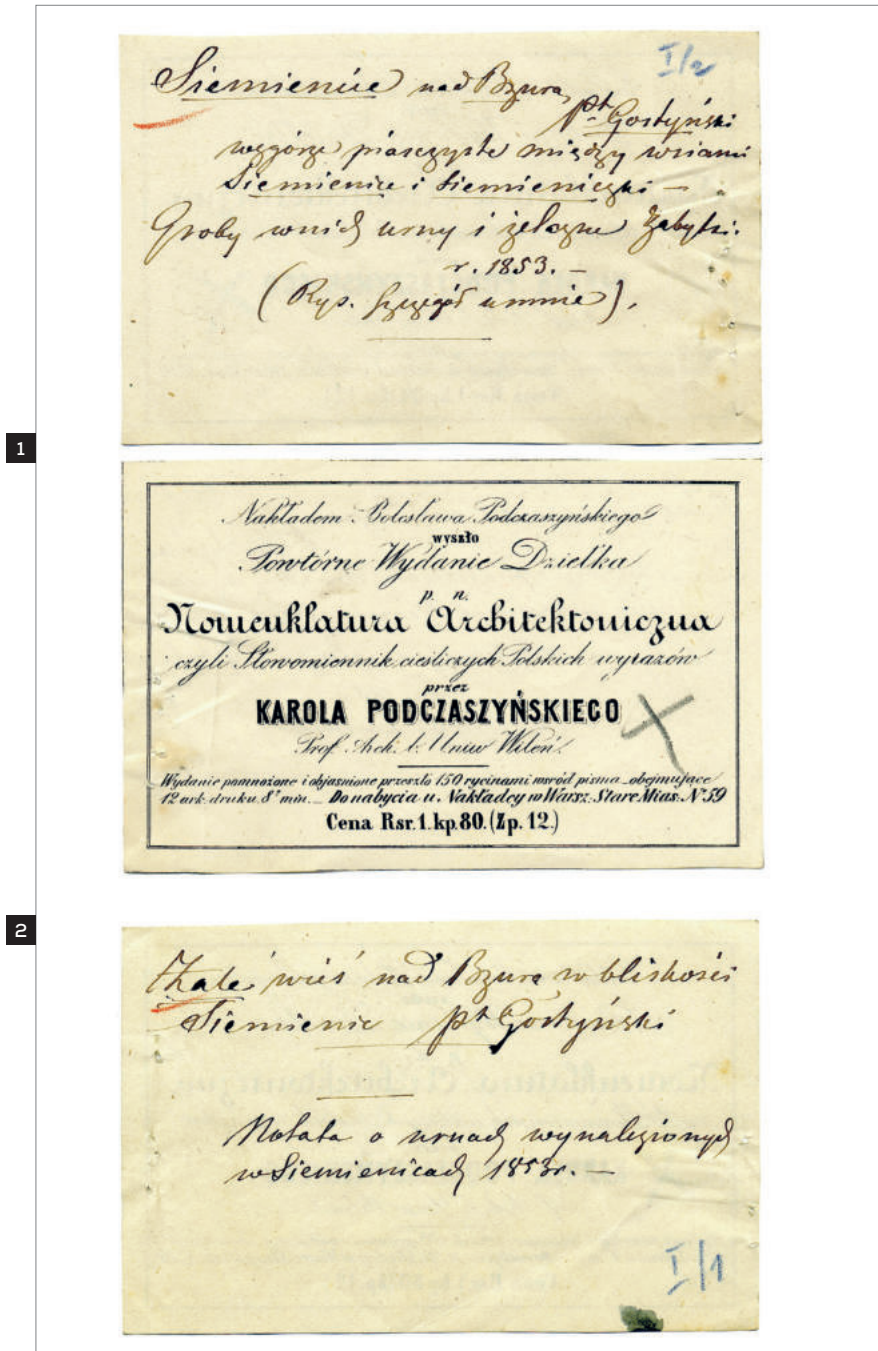 I/2
Siemienice nad Bzurą
pt Gostyński
wzgórze piasczyste między wsiami
Siemienice i Siemieniczki —
Groby w nich urny i żelazne Zabytki.
r. 1853. —
(Rys. szczegół u mnie).
1
Nakładem Bolesława Podczaszyńskiego
wyszło
Powtórne Wydanie Dziełka
p. n.
Nomenklatura Architektoniczna
czyli Słowomiennik cieśliczych Polskich wyrazów
przez
KAROLA PODCZASZYŃSKIEGO
Prof. Arch. b. Uniw Wileń.
Wydanie pomnożone i objasnione przeszło 150 rycinami wsród pisma obejmujące
12 ark. druku 8° min. _ Do nabycia u. Nakładcy w Warsz. Stare Mias. N° 59
Cena Rsr. 1. kp. 80. (Zp. 12.)
2
wieś nad Bzurą w bliskości
Siemienic pt Gostyński
Notata o urnach wynalezionych
w Siemienicach 1853r. —
I/1